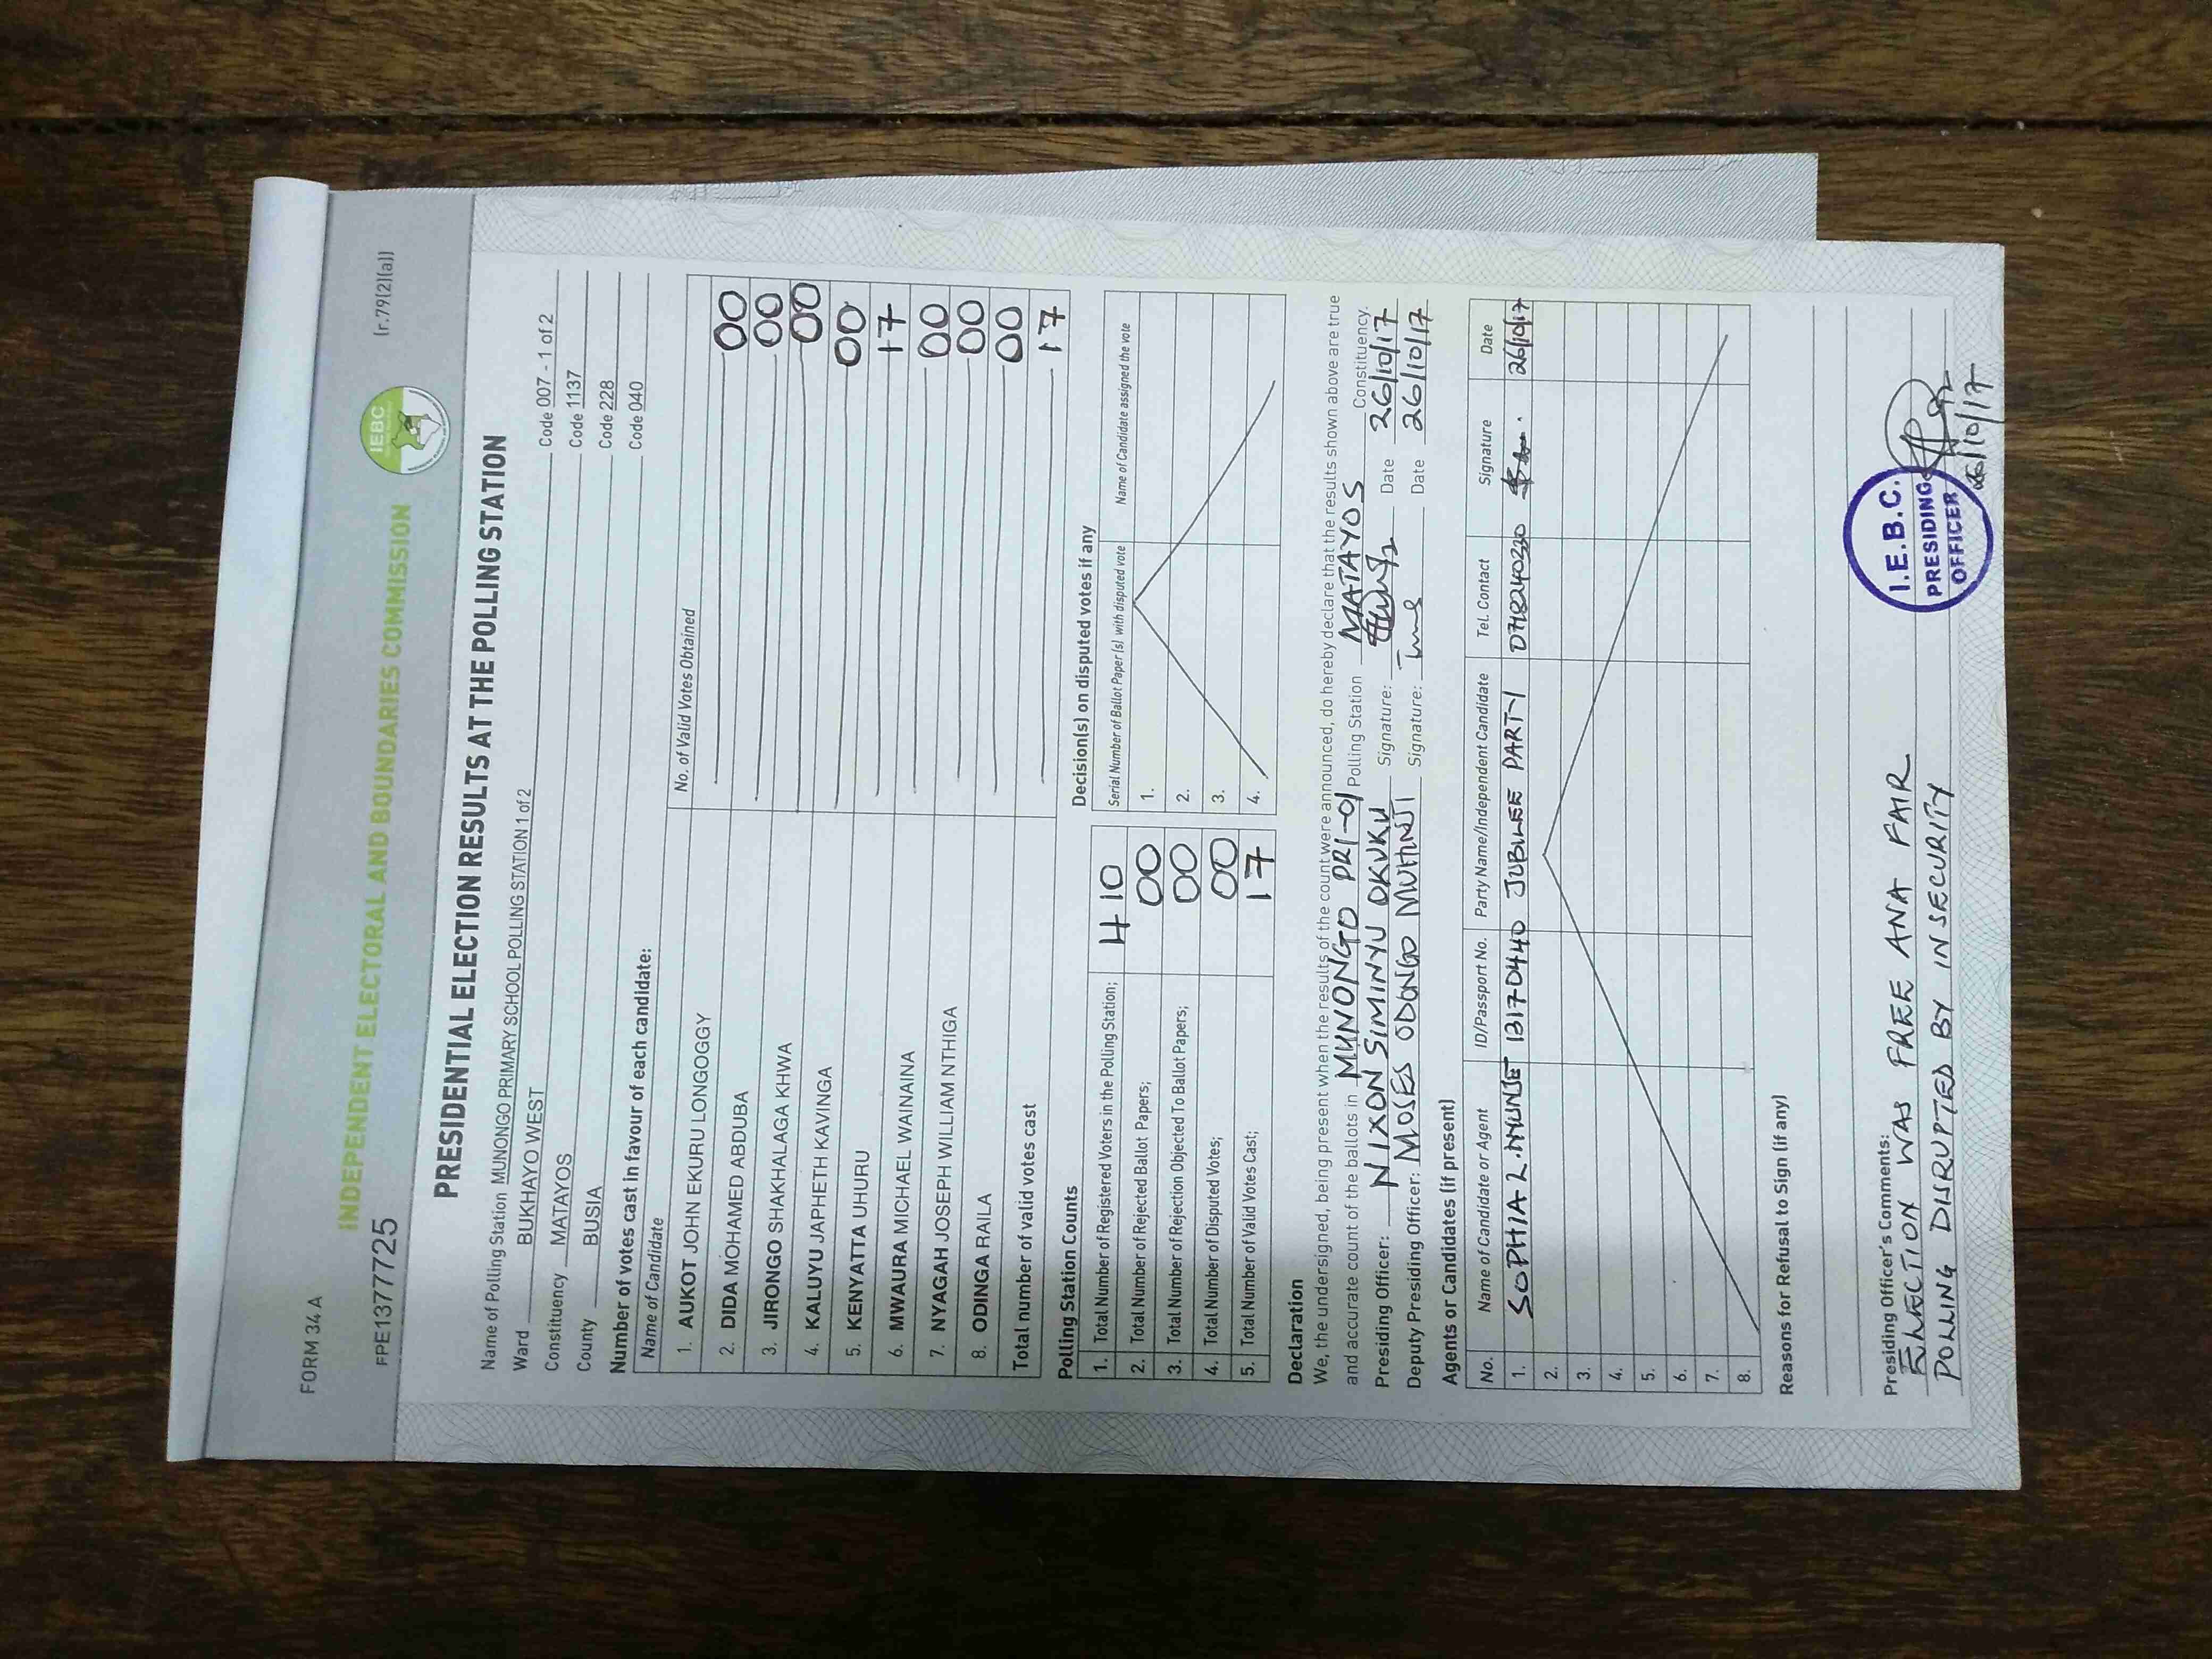 FORM 34 A
(r.79(2)(a))
IEBC
INDEPENDENT ELECTORAL AND BOUNDARIES COMMISSION
FPE1377725
PRESIDENTIAL ELECTION RESULTS AT THE POLLING STATION
Name of Polling Station MUNONGO PRIMARY SCHOOL POLLING STATION 1 of 2 Code 007 - 1 of 2
Ward BUKHAYO WEST Code 1137
Constituency MATAYOS Code 228
County BUSIA Code 040
Number of votes cast in favour of each candidate:
Name of Candidate No. of Valid Votes Obtained
1. AUKOT JOHN EKURU LONGOGGY 00
2. DIDA MOHAMED ABDUBA 00
3. JIRONGO SHAKHALAGA KHWA 00
4. KALUYU JAPHETH KAVINGA 00
5. KENYATTA UHURU 17
6. MWAURA MICHAEL WAINAINA 00
7. NYAGAH JOSEPH WILLIAM NTHIGA 00
8. ODINGA RAILA 00
Total number of valid votes cast 17
Polling Station Counts
1. Total Number of Registered Voters in the Polling Station; 410
2. Total Number of Rejected Ballot Papers; 00
3. Total Number of Rejection Objected To Ballot Papers; 00
4. Total Number of Disputed Votes; 00
5. Total Number of Valid Votes Cast; 17
Decision(s) on disputed votes if any
Serial Number of Ballot Paper (s) with disputed vote Name of Candidate assigned the vote
1.
2.
3.
4.
Declaration
We, the undersigned, being present when the results of the count were announced, do hereby declare that the results shown above are true
and accurate count of the ballots in MUNONGO PRI-01 Polling Station MATAYOS Constituency.
Presiding Officer: NIXON SIMINYU OKUKU Signature: Date 26/10/17
Deputy Presiding Officer: MOSES ODONGO MUHINJI Signature: Date 26/10/17
Agents or Candidates (if present)
No. Name of Candidate or Agent ID/Passport No. Party Name/Independent Candidate Tel. Contact Signature Date
1. SOPHIA L. 13170440 JUBLEE PARTY 0718240330 26/10/17
2.
3.
4.
5.
6.
7.
8.
Reasons for Refusal to Sign (if any)
Presiding Officer's Comments:
ELECTION WAS FREE ANA FAIR
POLLING DISRUPTED BY INSECURITY
I.E.B.C.
PRESIDING
OFFICER
26/10/17